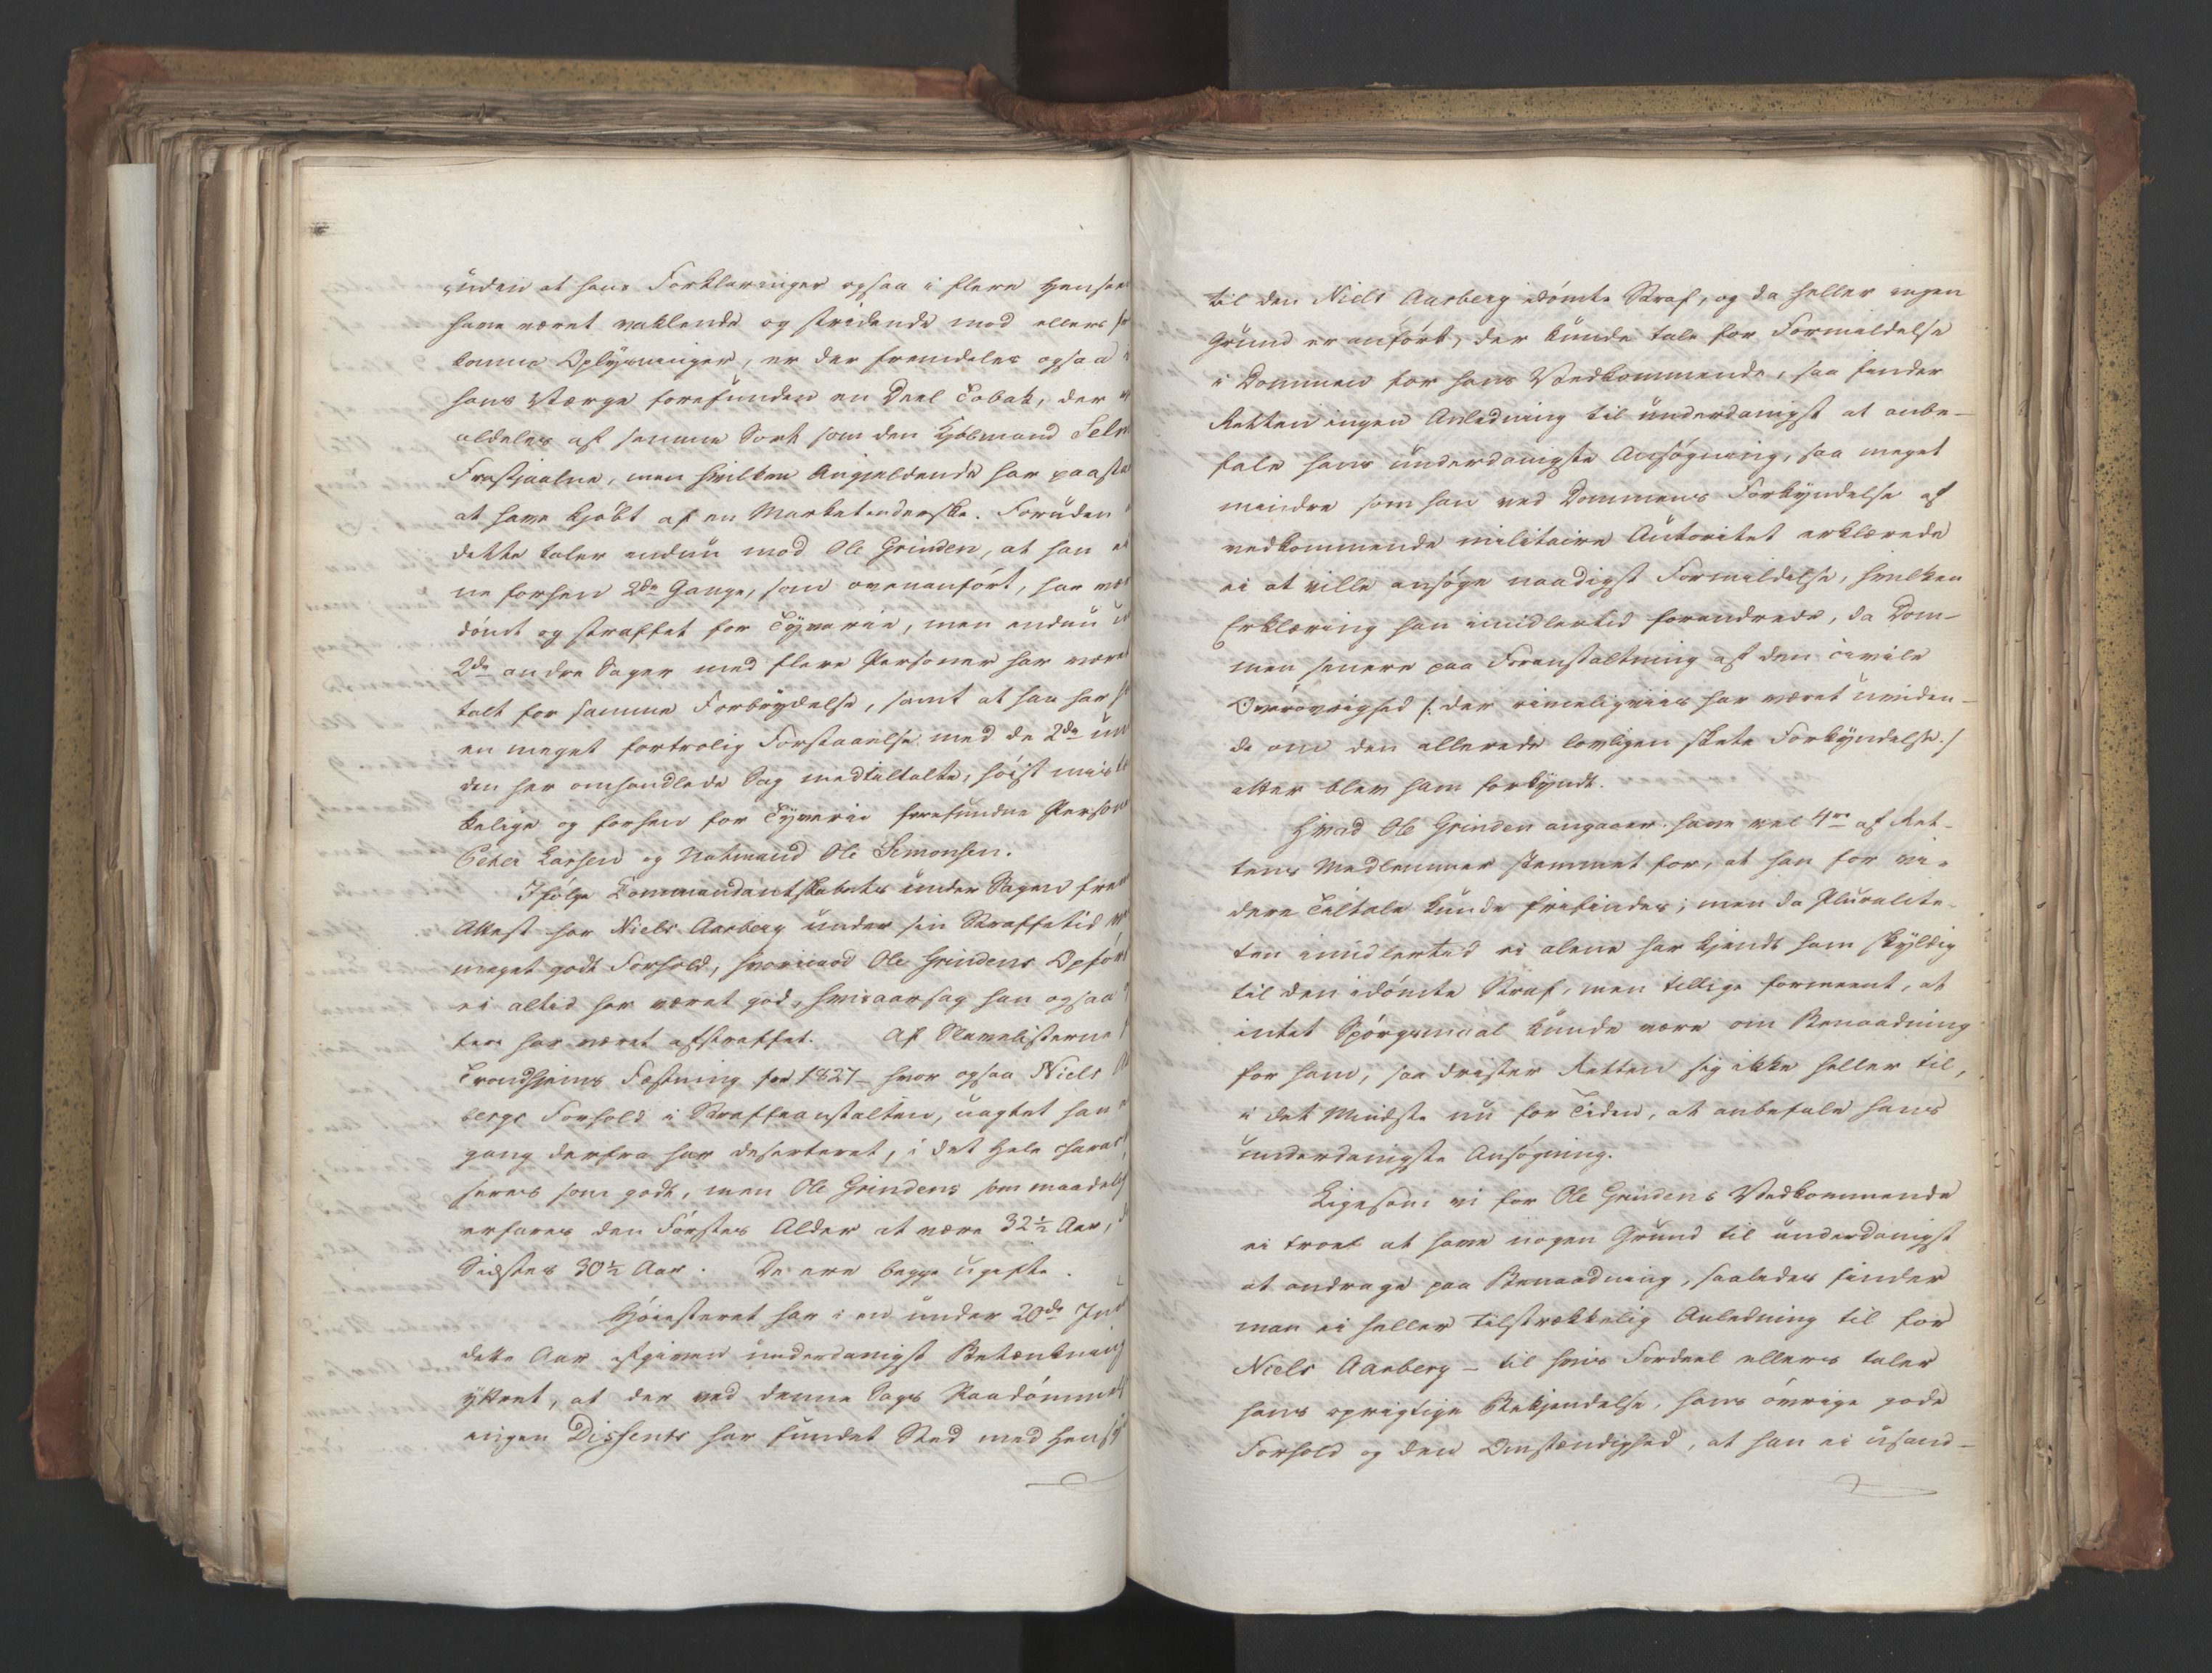 uden at hans Forklaringer ogsaa i flere Hensee
have været vaklende og stridende mod ellers
komne Oplysninger, er der fremdeles ogsaa i
hans Værge forefunden en Deel Tobak, der
aldeles af samme Sort som den Kjøbmand
Frastjaalne, men hvilken Angjeldende har paasta
at have kjøbt af en Marketenderske. Foruden
dette taler endnu mod Ole Grinden, at han
ne forhen 2de Gange, som ovenanført, har væ
dömt og straffet for Tyverie, men endnu
2de andre Sager med flere Personer har været
talt for samme Forbrydelse, samt at han har
en meget fortrolig Forstaaelse med de 2de un
den her omhandlede Sag medtiltalte, höist mis
kelige og forhen for Tyverie forefundne Person
Peter Larsen og Natmand Ole Simonsen.
Ifölge Commandantskabets under Sagen frem
Attest har Niels Aasberg under sin Straffetid
meget godt Forhold, hvorimod Ole Grindens Opför
ei altid har været god, hvisaarsag han ogsaa
tere har været afstraffet. Af Slavelisterne
Trondhjems Fæstning for 1827 hvor ogsaa Niels
bergs Forhold i Straffeanstalten, uagtet han
gang derfra har deserteret, i det Hele charac
seres som godt, men Ole Grindens som maadel
erfares den Förstes Alder at være 32½ Aar,
Sidstes 30½ Aar. De ere begge ugifte.
Höiesteret har i en under 20de
dette Aar afgiven underdanigst Betænkning
yttret, at der ved denne Sags Paadömmel
ingen Dissents har fundet Sted med Hensÿ
til den Niels Aasberg idömte Straf, og da heller ingen
Grund er anfört, der kunde tale for Formildelse
i Dommen for hans Vedkommende, saa finder
Retten ingen Anledning til underdanigst at anbe-
fale hans underdanigste Ansögning, saa meget
mindre som han ved Dommens Forkyndelse af
vedkommende militaire Autoritet erklærede
ei at ville ansöge naadigst Formildelse, hvilken
Erklæring han imidlertid forandrede, da Dom-
men senere paa Foranstaltning af den civile
Överövrighed /: der rimeligviis har været uviden-
de om den allerede lovligen skete Forkyndelse :/
atter blev ham forkyndt.
Hvad Ole Grinden angaaer have vel 4re af Ret-
tens Medlemmer stemmet for, at han for vi-
dere Tiltale kunde frifindes; men da Plurolite-
ten imidlertid ei alene har kjendt ham skyldig
til den idömte Straf, men tillige formeent, at
intet Spörgsmaal kunde være om Benaadning
for ham, saa drister Retten sig ikke heller til,
i det Mindste nu for Tiden, at anbefale hans
underdanigste Ansögning.
Ligesom vi for Ole Grindens Vedkommende
ei troer at have nogen Grund til underdanigst
at andrage paa Benaadning, saaledes finder
man ei heller tilstrækkelig Anledning til for
Niels Aasberg - til hvis Fordeel ellers taler
hans oprigtige Bekjendelse, hans övrige gode
Forhold og den Omstændighed, at han ei usand-